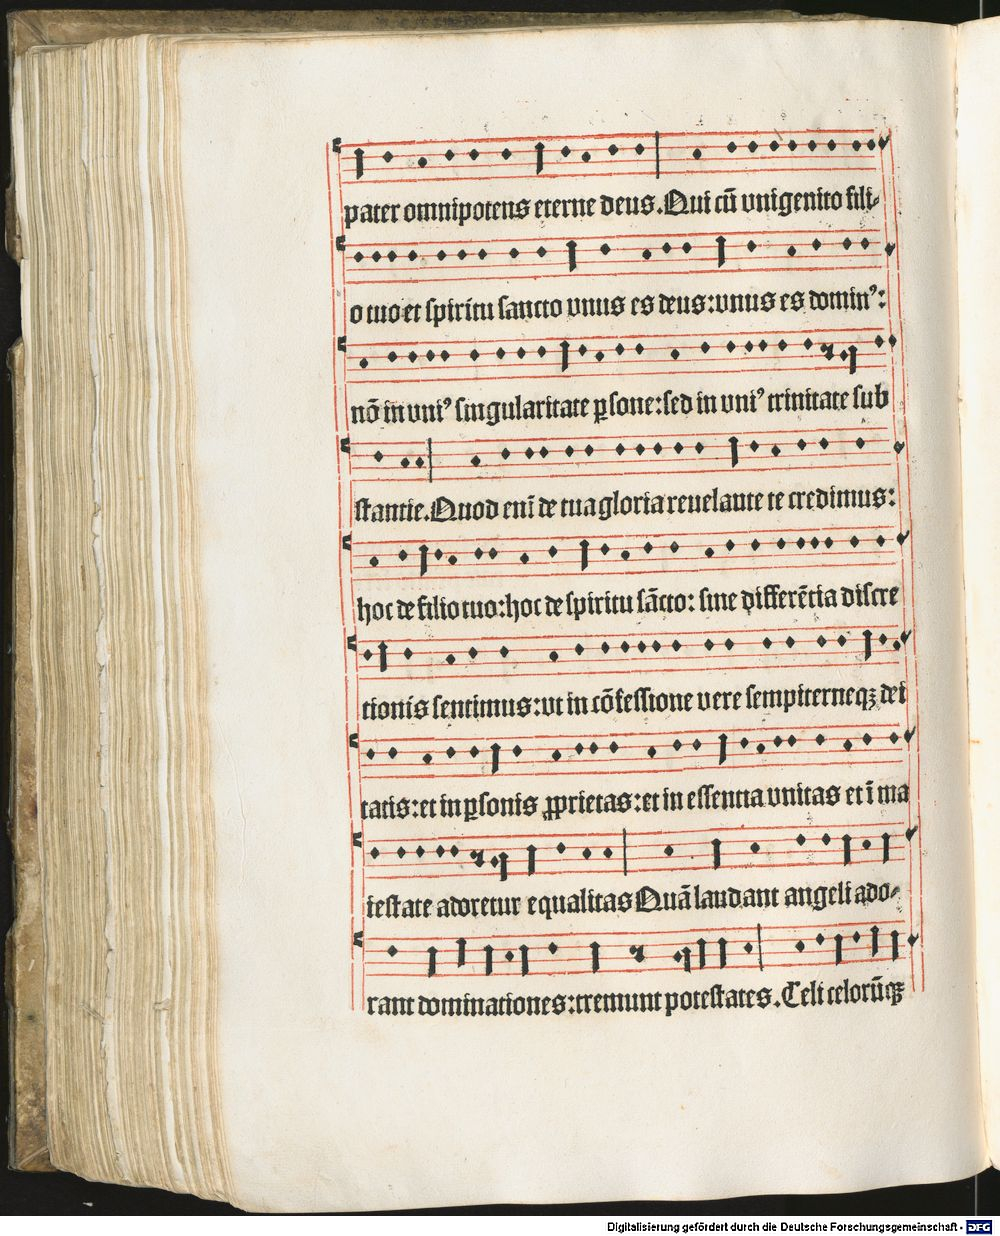 pater omnipotens eterne deus. Qui cū vnigenito fili⸗
o tuo et spiritu sancto vnus es deus: vnus es dominꝰ:
nō in vniꝰ singularitate ꝑsone: sed in vniꝰ trinitate sub
stantie. Quod enī de tua gloria reuelante te credimus:
hoc de filio tuo: hoc de spiritu sācto: sine differētia discre
tionis sentimus: vt in cōfessione vere sempiterneqꝫ dei
tatis: et in ꝑsonis ꝓprietas: et in essentia vnitas et ī ma
iestate adoretur equalitas Quā laudant angeli ado⸗
rant dominationes: tremunt potestates. Celi celorūqꝫ
Digitalisierung gefördert durch die Deutsche Forschungsgemeinschaft - DFG